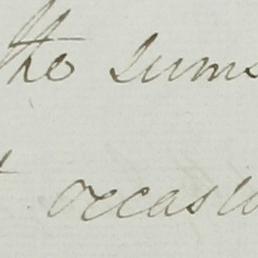 the sums
occasio